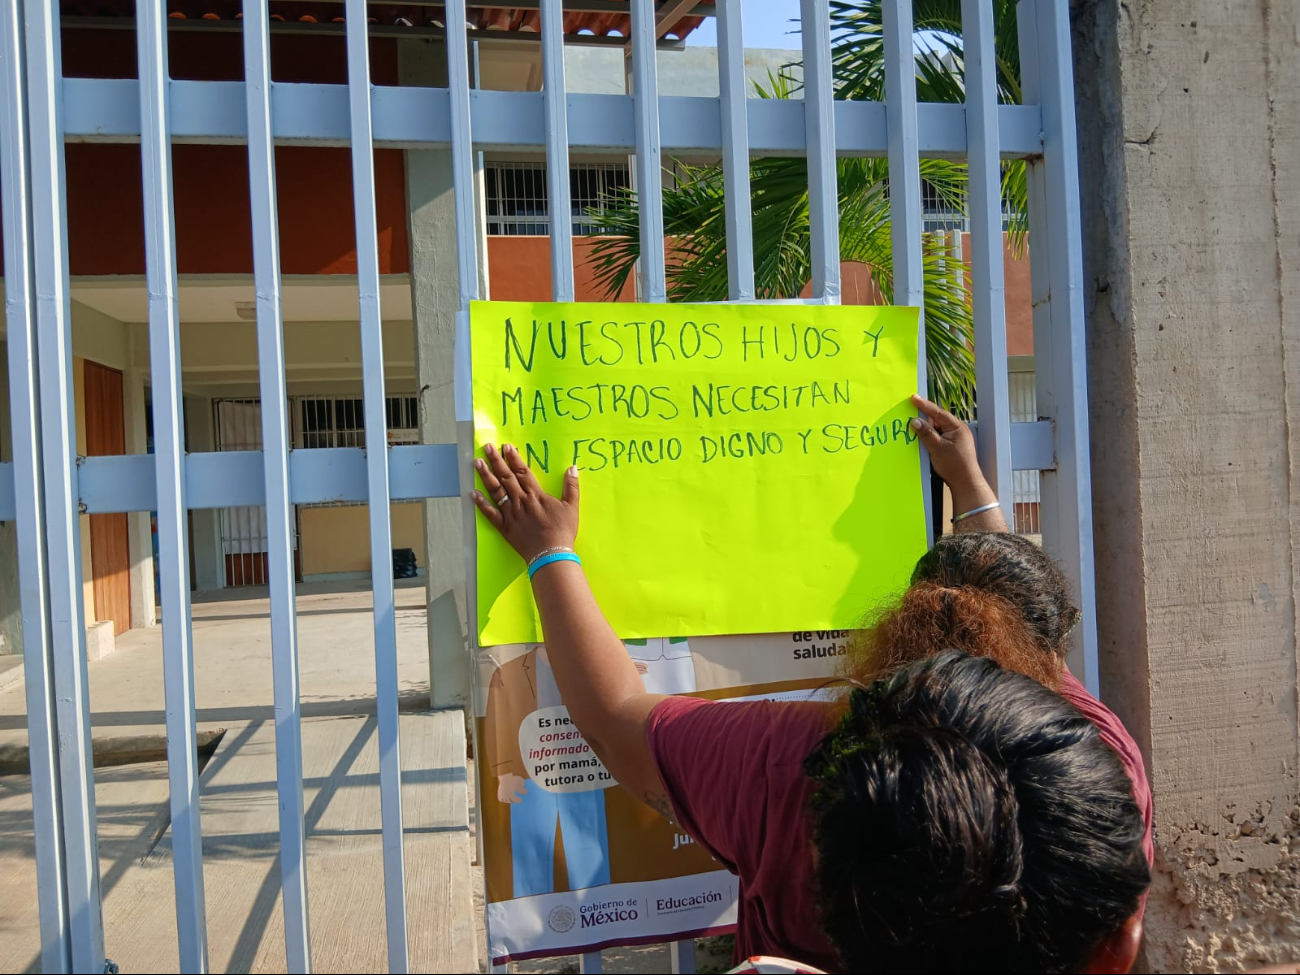 NUESTROS HIJOS Y
MAESTROS NECESITAN
ESPACIO DIGNO Y SEGURO
de vida
saludab
Es nec
conse
informado
por mamá,
tutora o tu
Ju
Gobierno de
México
Educación